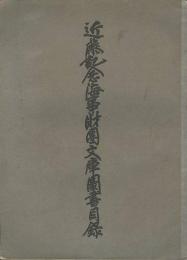 近藤記念海事財團文庫圖書目錄